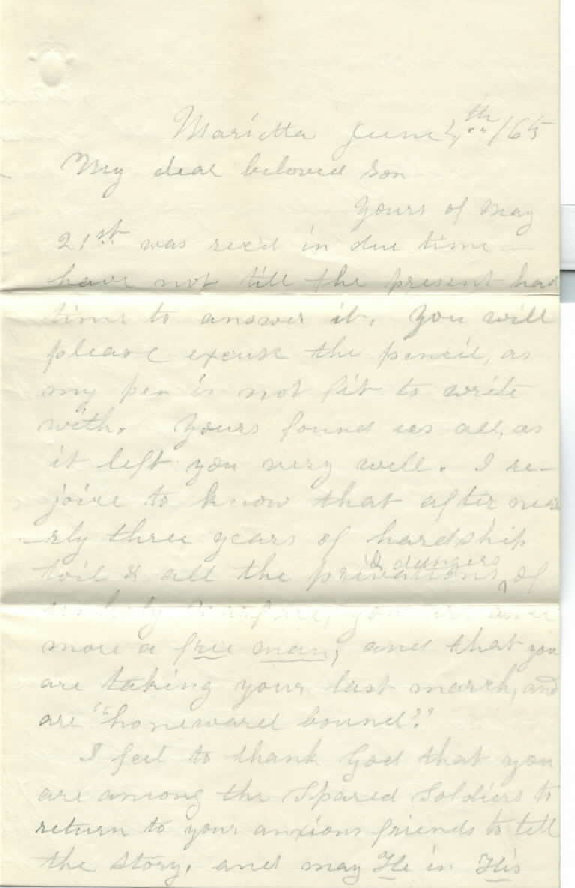 Marietta June 4th /65
My dear beloved Son
Yours of May
21st was rec'd in due time
have not till the present had
time to answer it. You will
please excuse the pencil, as
my pen is not fit to write
with. Yours found us all, as
it left you very well. I re-
joice to know that after nea
rly three years of hardship
toil & all the privations & dangers of
you
more a free man, and that you
are taking your last march, and
are "homeward bound."
I feel to thank God that you
are among the Spared Soldiers to
return to your anxious friends to tell
the story, and may He in His